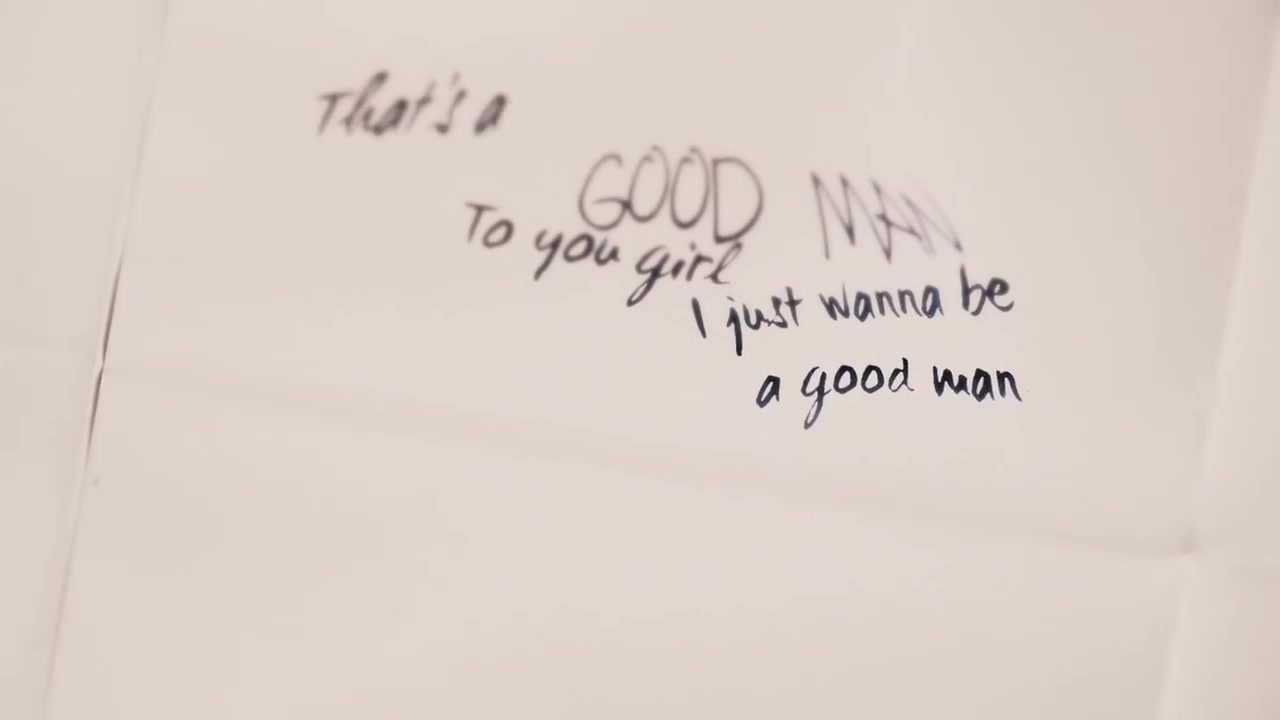 That's a
GOOD MAN
To you girl
I just wanna be
a good man